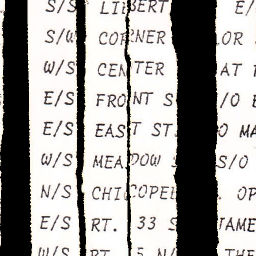 S/S LIBERT E/
S/W CORNER OR
W/S CENTER AT
E/S FRONT S /O
E/S EAST ST. O MA
W/S MEADOW S/O
N/S CHICOPEE OP
E/S RT. 33 S JAME
W/S RT 5 N/ THE